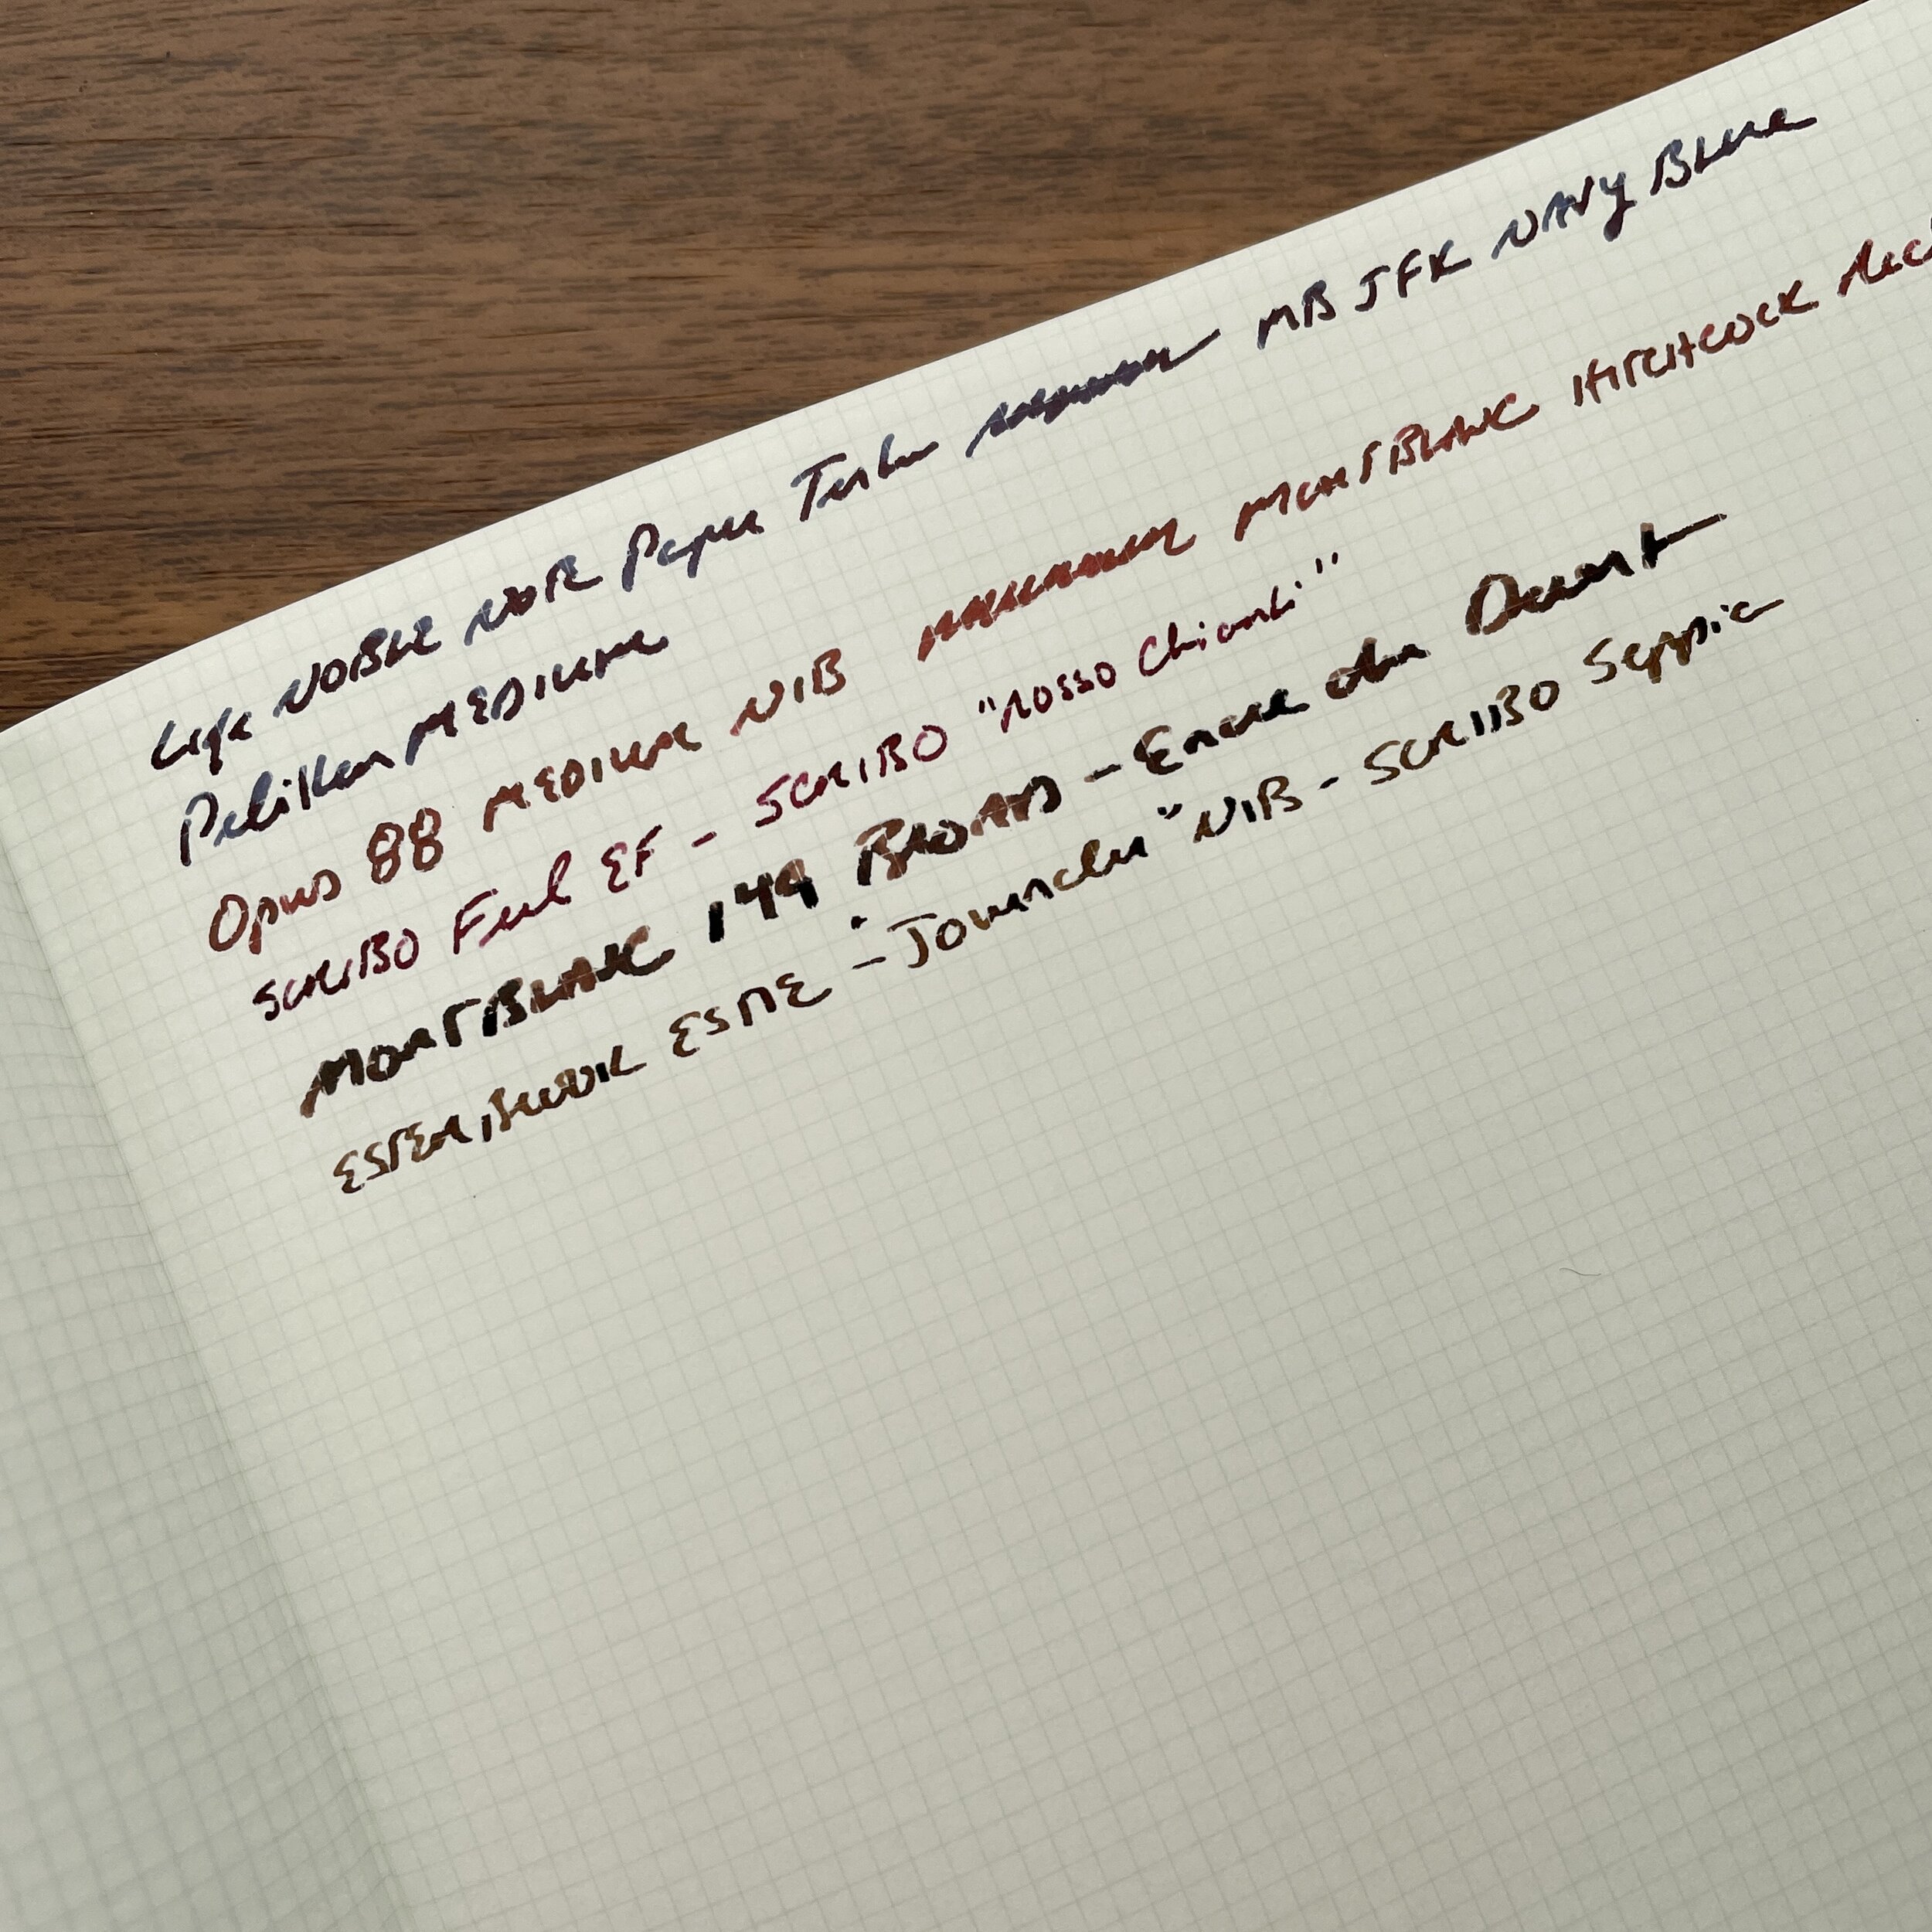 Life NOBLE NOTE Paper Tester MB JFK NAVY BLUE
Pelikan MEDIUM
Opus 88 MEDIUM NIB MONTBLANC HITCHCOCK Red
SCRIBO Feel EF - SCRIBO "ROSSO Chianti"
MONTBLANC 149 BROAD - Encre du Desert
ESTERBROOK ESTIE - "Journaler" NIB - SCRIBO Seppia